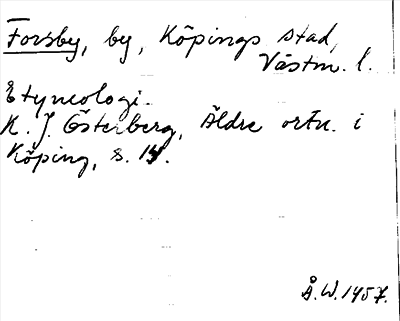 Forsby, by, Köpings stad,
Västm. l.
Etymologi.
K. J. Österberg, Äldre ortn. i
Köping, s. 14.
Å.W. 1957.